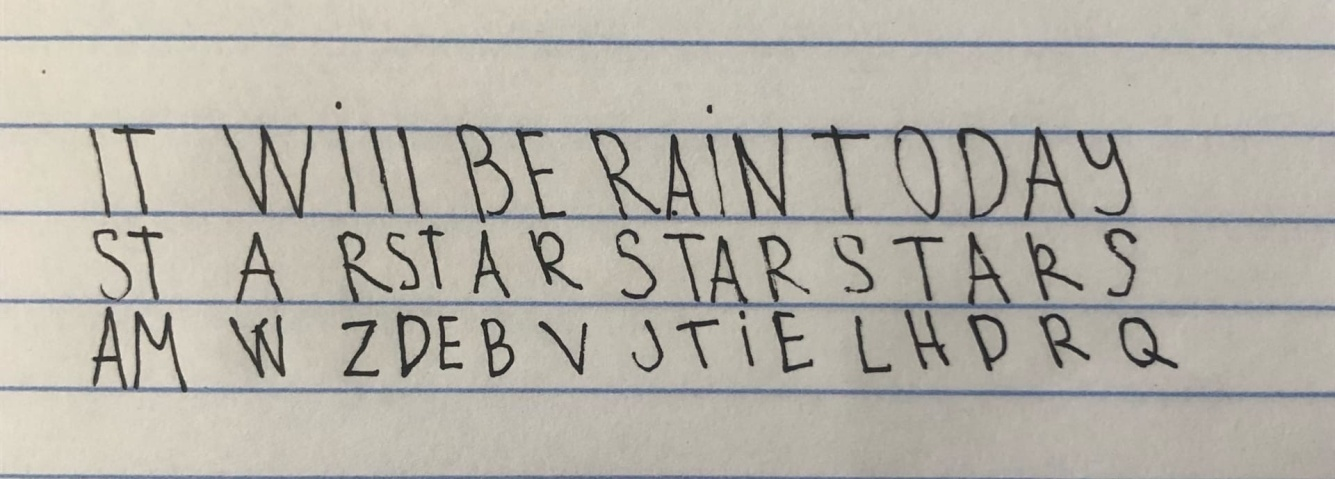 IT WiLL BE RAiN TODAY
ST A RST A R STAR S T A R S
AM W ZDEB V JTiE L H D R Q